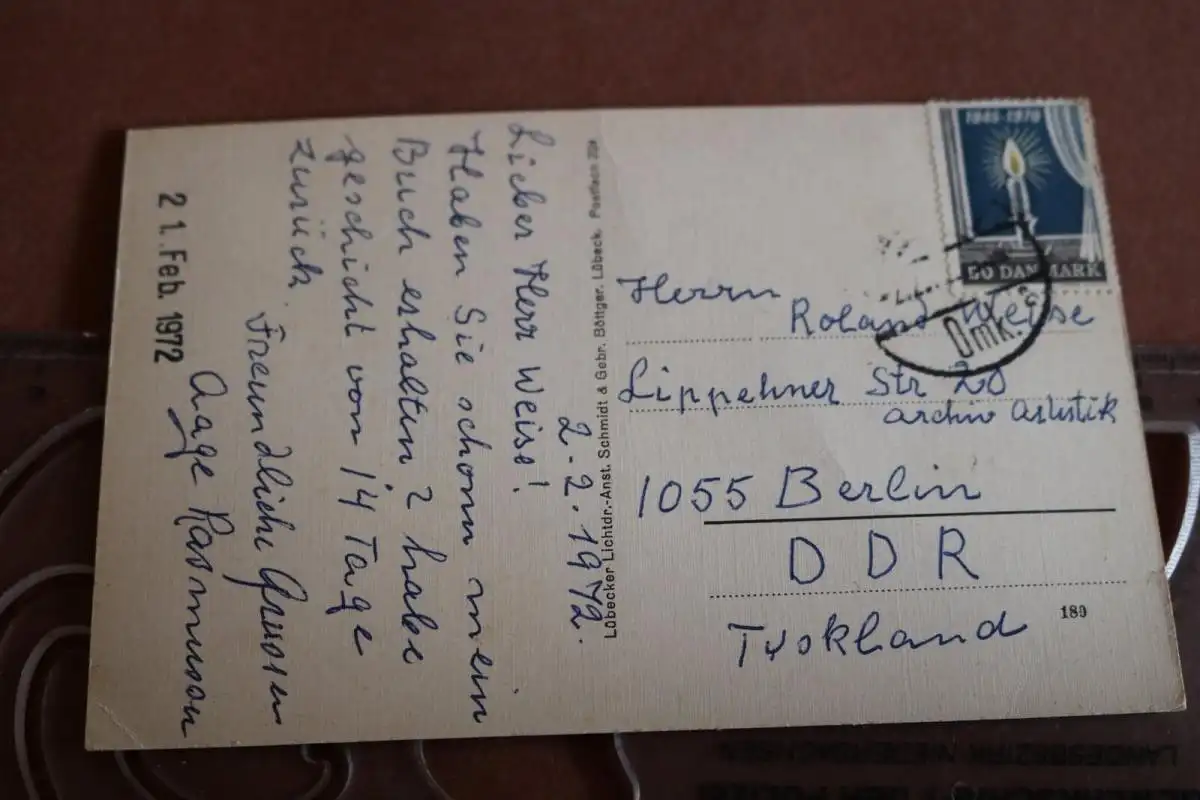 2-2.1972.
Lieber Herr Weise!
Haben Sie schonn mein
Buch erhalten? habe
geschicht vor 14 Tage
zurück.
Freundliche Gruosen
Aage Rasmussen
21. Feb. 1972
Lübecker Lichtdr.-Anst. Schmidt & Gebr. Böttger. Lübeck. Postfach
1945-1970
50 DANMARK
Omk.
Herrn
Roland Weise
Lippehner Str 20
archiv Artistik
1055 Berlin
DDR
Tyskland
189
LANDESBEZIRK NIEDERSACHSEN